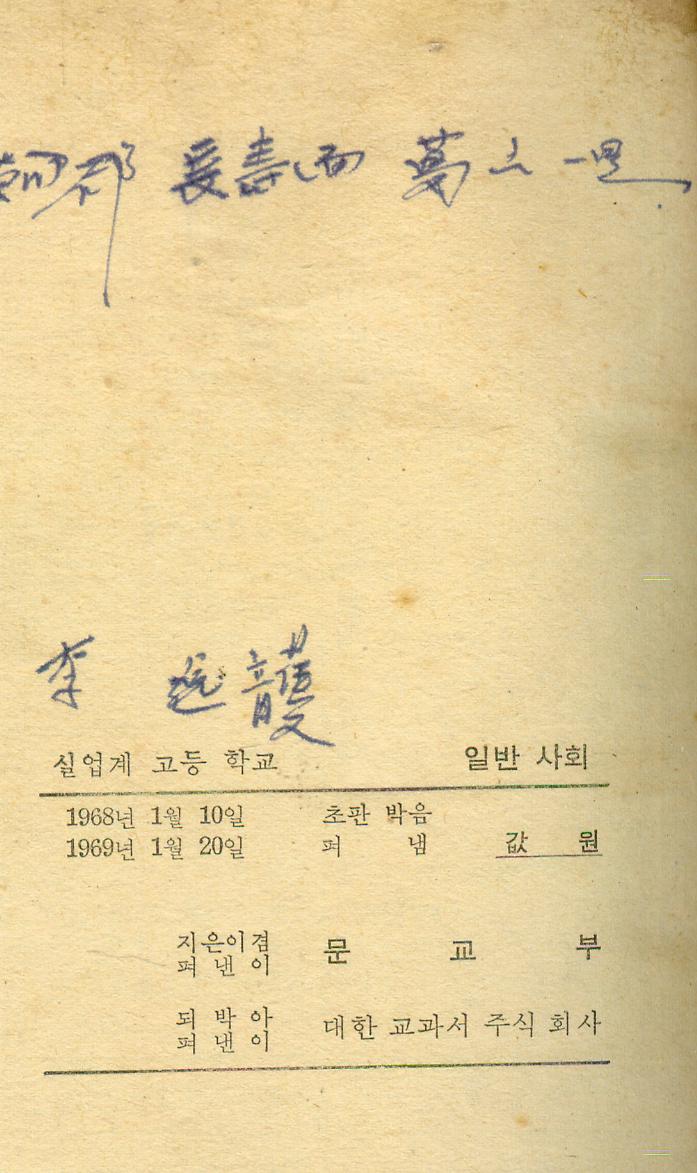 長壽面
李
실업계 고등 학교 일반 사회
1968년 1월 10일 초판 박음
1969년 1월 20일 펴 냄 값 원
지은이겸
펴 낸 이 문 교 부
되 박 아
펴 낸 이 대한 교과서 주식 회사